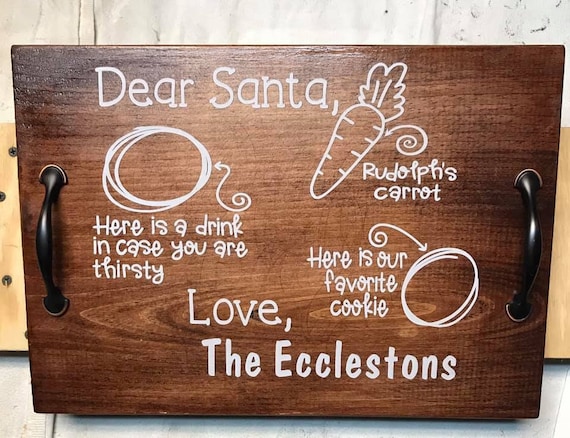 Dear Santa,
Rudolph's
carrot
Here is a drink
in case you are
thirsty
Here is our
favorite
cookie
Love,
The Ecclestons